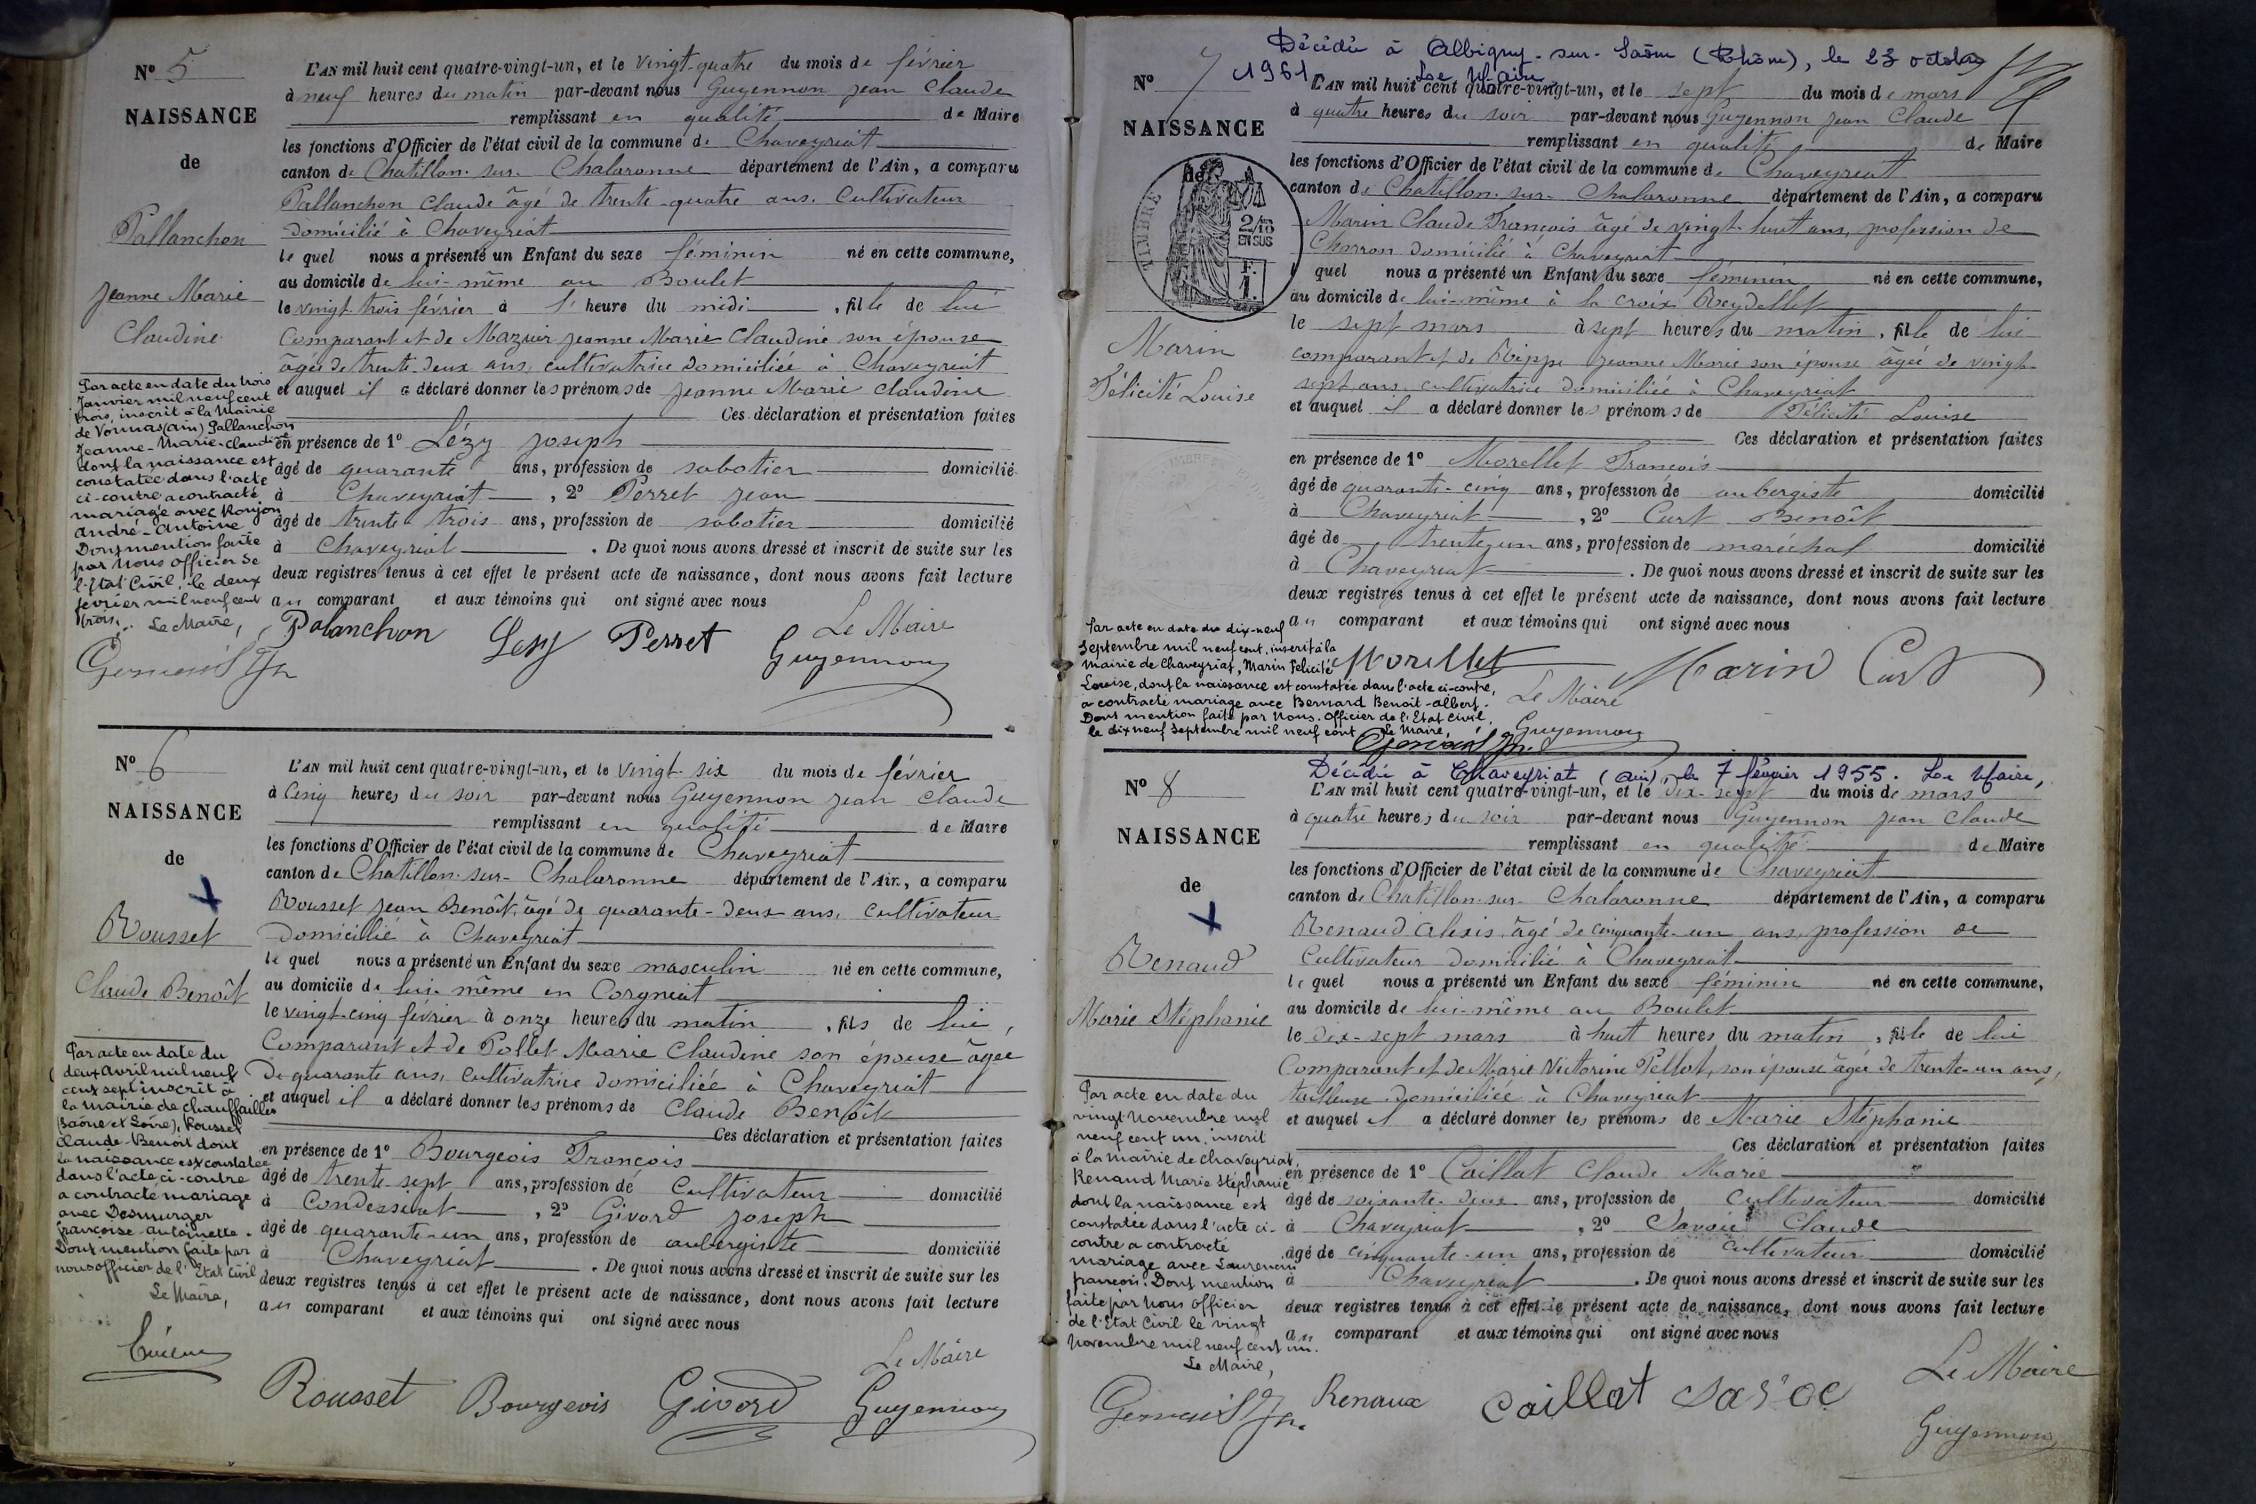 N° 5
NAISSANCE
de
Pallanchon
Jeanne Marie
Claudine
L'AN mil huit cent quatre-vingt-un, et le vingt-quatre du mois de février
à neuf heures du matin par-devant nous Guyennon Jean Claude
remplissant en qualité de Maire
les fonctions d'Officier de l'état civil de la commune de Chaveyriat
canton de Chatillon-sur-Chalaronne département de l'Ain, a comparu
Pallanchon Claude âgé de trente-quatre ans, Cultivateur
domicilié à Chaveyriat
le quel nous a présenté un Enfant du sexe féminin né en cette commune,
au domicile de lui-même au Boulet
le vingt-trois février à 1 heure du midi, fille de lui
Comparant et de Mazuir Jeanne Marie Claudine son épouse
âgée de trente-deux ans, cultivatrice domiciliée à Chaveyriat
et auquel il a déclaré donner les prénoms de Jeanne Marie Claudine
Ces déclaration et présentation faites
en présence de 1° Lézy Joseph
âgé de quarante ans, profession de sabotier domicilié
à Chaveyriat, 2° Perret Jean
âgé de trente trois ans, profession de sabotier domicilié
à Chaveyriat. De quoi nous avons dressé et inscrit de suite sur les
deux registres tenus à cet effet le présent acte de naissance, dont nous avons fait lecture
au comparant et aux témoins qui ont signé avec nous
Par acte en date du trois
Janvier mil neuf cent
trois, inscrit à la Mairie
de Vonnas (Ain) Pallanchon
Jeanne-Marie-Claudine
dont la naissance est
constatée dans l'acte
ci-contre a contracté
mariage avec Roujon
André-Antoine
Dont mention faite
par Nous Officier de
l'Etat Civil, le deux
février mil neuf cent
trois. Le Maire,
Palanchon Lesy Perret Le Maire
Guyennon
N° 6
NAISSANCE
de
Rousset
Claude Benoît
L'AN mil huit cent quatre-vingt-un, et le vingt-six du mois de février
à cinq heures du soir par-devant nous Guyennon Jean Claude
remplissant en qualité de Maire
les fonctions d'Officier de l'état civil de la commune de Chaveyriat
canton de Chatillon-sur-Chalaronne département de l'Ain, a comparu
Rousset Jean Benoît, âgé de quarante-deux ans, Cultivateur
Domicilié à Chaveyriat
le quel nous a présenté un Enfant du sexe masculin né en cette commune,
au domicile de lui-même en Corgneiat
le vingt-cinq février à onze heures du matin, fils de lui,
Comparant et de Pollet Marie Claudine son épouse âgée
De quarante ans, cultivatrice domiciliée à Chaveyriat
et auquel il a déclaré donner les prénoms de Claude Benoît
Ces déclaration et présentation faites
en présence de 1° Bourgeois François
âgé de trente-sept ans, profession de Cultivateur domicilié
à Condessiat, 2° Givord Joseph
âgé de quarante-un ans, profession de aubergiste domicilié
à Chaveyriat. De quoi nous avons dressé et inscrit de suite sur les
deux registres tenus à cet effet le présent acte de naissance, dont nous avons fait lecture
au comparant et aux témoins qui ont signé avec nous
Par acte en date du
deux Avril mil neuf
cent sept inscrit à
la Mairie de Chauffailles
(Saône et Loire), Rousset
Claude-Benoît dont
la naissance est constatée
dans l'acte ci-contre
a contracté mariage
avec Desmurger
Françoise-Antoinette.
Dont mention faite par
nous officier de l'Etat Civil
Le Maire,
Rousset Bourgeois Givord Le Maire
Guyennon
Décédée à Albigny-sur-Saône (Rhône), le 23 octobre
1961 Le Maire
N° 7
NAISSANCE
de
TIMBRE
2/10 EN SUS
F. 1.
Marin
Félicité Louise
L'AN mil huit cent quatre-vingt-un, et le sept du mois de mars
à quatre heures du soir par-devant nous Guyennon Jean Claude
remplissant en qualité de Maire
les fonctions d'Officier de l'état civil de la commune de Chaveyriat
canton de Chatillon-sur-Chalaronne département de l'Ain, a comparu
Marin Claude François âgé de vingt-huit ans, profession de
Charron domicilié à Chaveyriat
quel nous a présenté un Enfant du sexe féminin né en cette commune,
au domicile de lui-même à la croix Reydellet
le sept mars à sept heures du matin, fille de lui
comparant et de Rippe Jeanne Marie son épouse âgée de vingt-
sept ans, cultivatrice domiciliée à Chaveyriat
et auquel il a déclaré donner les prénoms de Félicité Louise
Ces déclaration et présentation faites
en présence de 1° Morellet François
âgé de quarante-cinq ans, profession de aubergiste domicilié
à Chaveyriat, 2° Curt Benoît
âgé de trente-un ans, profession de maréchal domicilié
à Chaveyriat. De quoi nous avons dressé et inscrit de suite sur les
deux registres tenus à cet effet le présent acte de naissance, dont nous avons fait lecture
au comparant et aux témoins qui ont signé avec nous
Par acte en date du dix-neuf
Septembre mil neuf cent, inscrit à la
Mairie de Chaveyriat, Marin Félicité
Louise, dont la naissance est constatée dans l'acte ci-contre,
a contracté mariage avec Bernard Benoit-Albert.
Dont mention faite par Nous, Officier de l'Etat Civil,
le dix neuf Septembre mil neuf cent Le Maire,
Morellet Marin Curt
Le Maire
Guyennon
Décédée à Chaveyriat (Ain), le 7 février 1955. Le Maire,
N° 8
NAISSANCE
de
Renaud
Marie Stéphanie
L'AN mil huit cent quatre-vingt-un, et le dix-sept du mois de mars
à quatre heures du soir par-devant nous Guyennon Jean Claude
remplissant en qualité de Maire
les fonctions d'Officier de l'état civil de la commune de Chaveyriat
canton de Chatillon-sur-Chalaronne département de l'Ain, a comparu
Renaud Alexis, âgé de cinquante-un ans, profession de
Cultivateur domicilié à Chaveyriat
le quel nous a présenté un Enfant du sexe féminin né en cette commune,
au domicile de lui-même au Boulet
le dix-sept mars à huit heures du matin, fille de lui
Comparant et de Marie Victorine Pellot, son épouse âgée de trente-un ans,
tailleuse domiciliée à Chaveyriat
et auquel il a déclaré donner les prénoms de Marie Stéphanie
Ces déclaration et présentation faites
en présence de 1° Caillat Claude Marie
âgé de soixante-deux ans, profession de cultivateur domicilié
à Chaveyriat, 2° Savoie Claude
âgé de cinquante-un ans, profession de cultivateur domicilié
à Chaveyriat. De quoi nous avons dressé et inscrit de suite sur les
deux registres tenus à cet effet le présent acte de naissance, dont nous avons fait lecture
au comparant et aux témoins qui ont signé avec nous
Par acte en date du
vingt Novembre mil
neuf cent un, inscrit
à la Mairie de Chaveyriat,
Renaud Marie Stéphanie
dont la naissance est
constatée dans l'acte ci-
contre a contracté
mariage avec Laurencin
françois. Dont mention
faite par Nous Officier
de l'Etat Civil le vingt
Novembre mil neuf cent un.
Le Maire,
Renaux Caillat
Le Maire
Guyennon